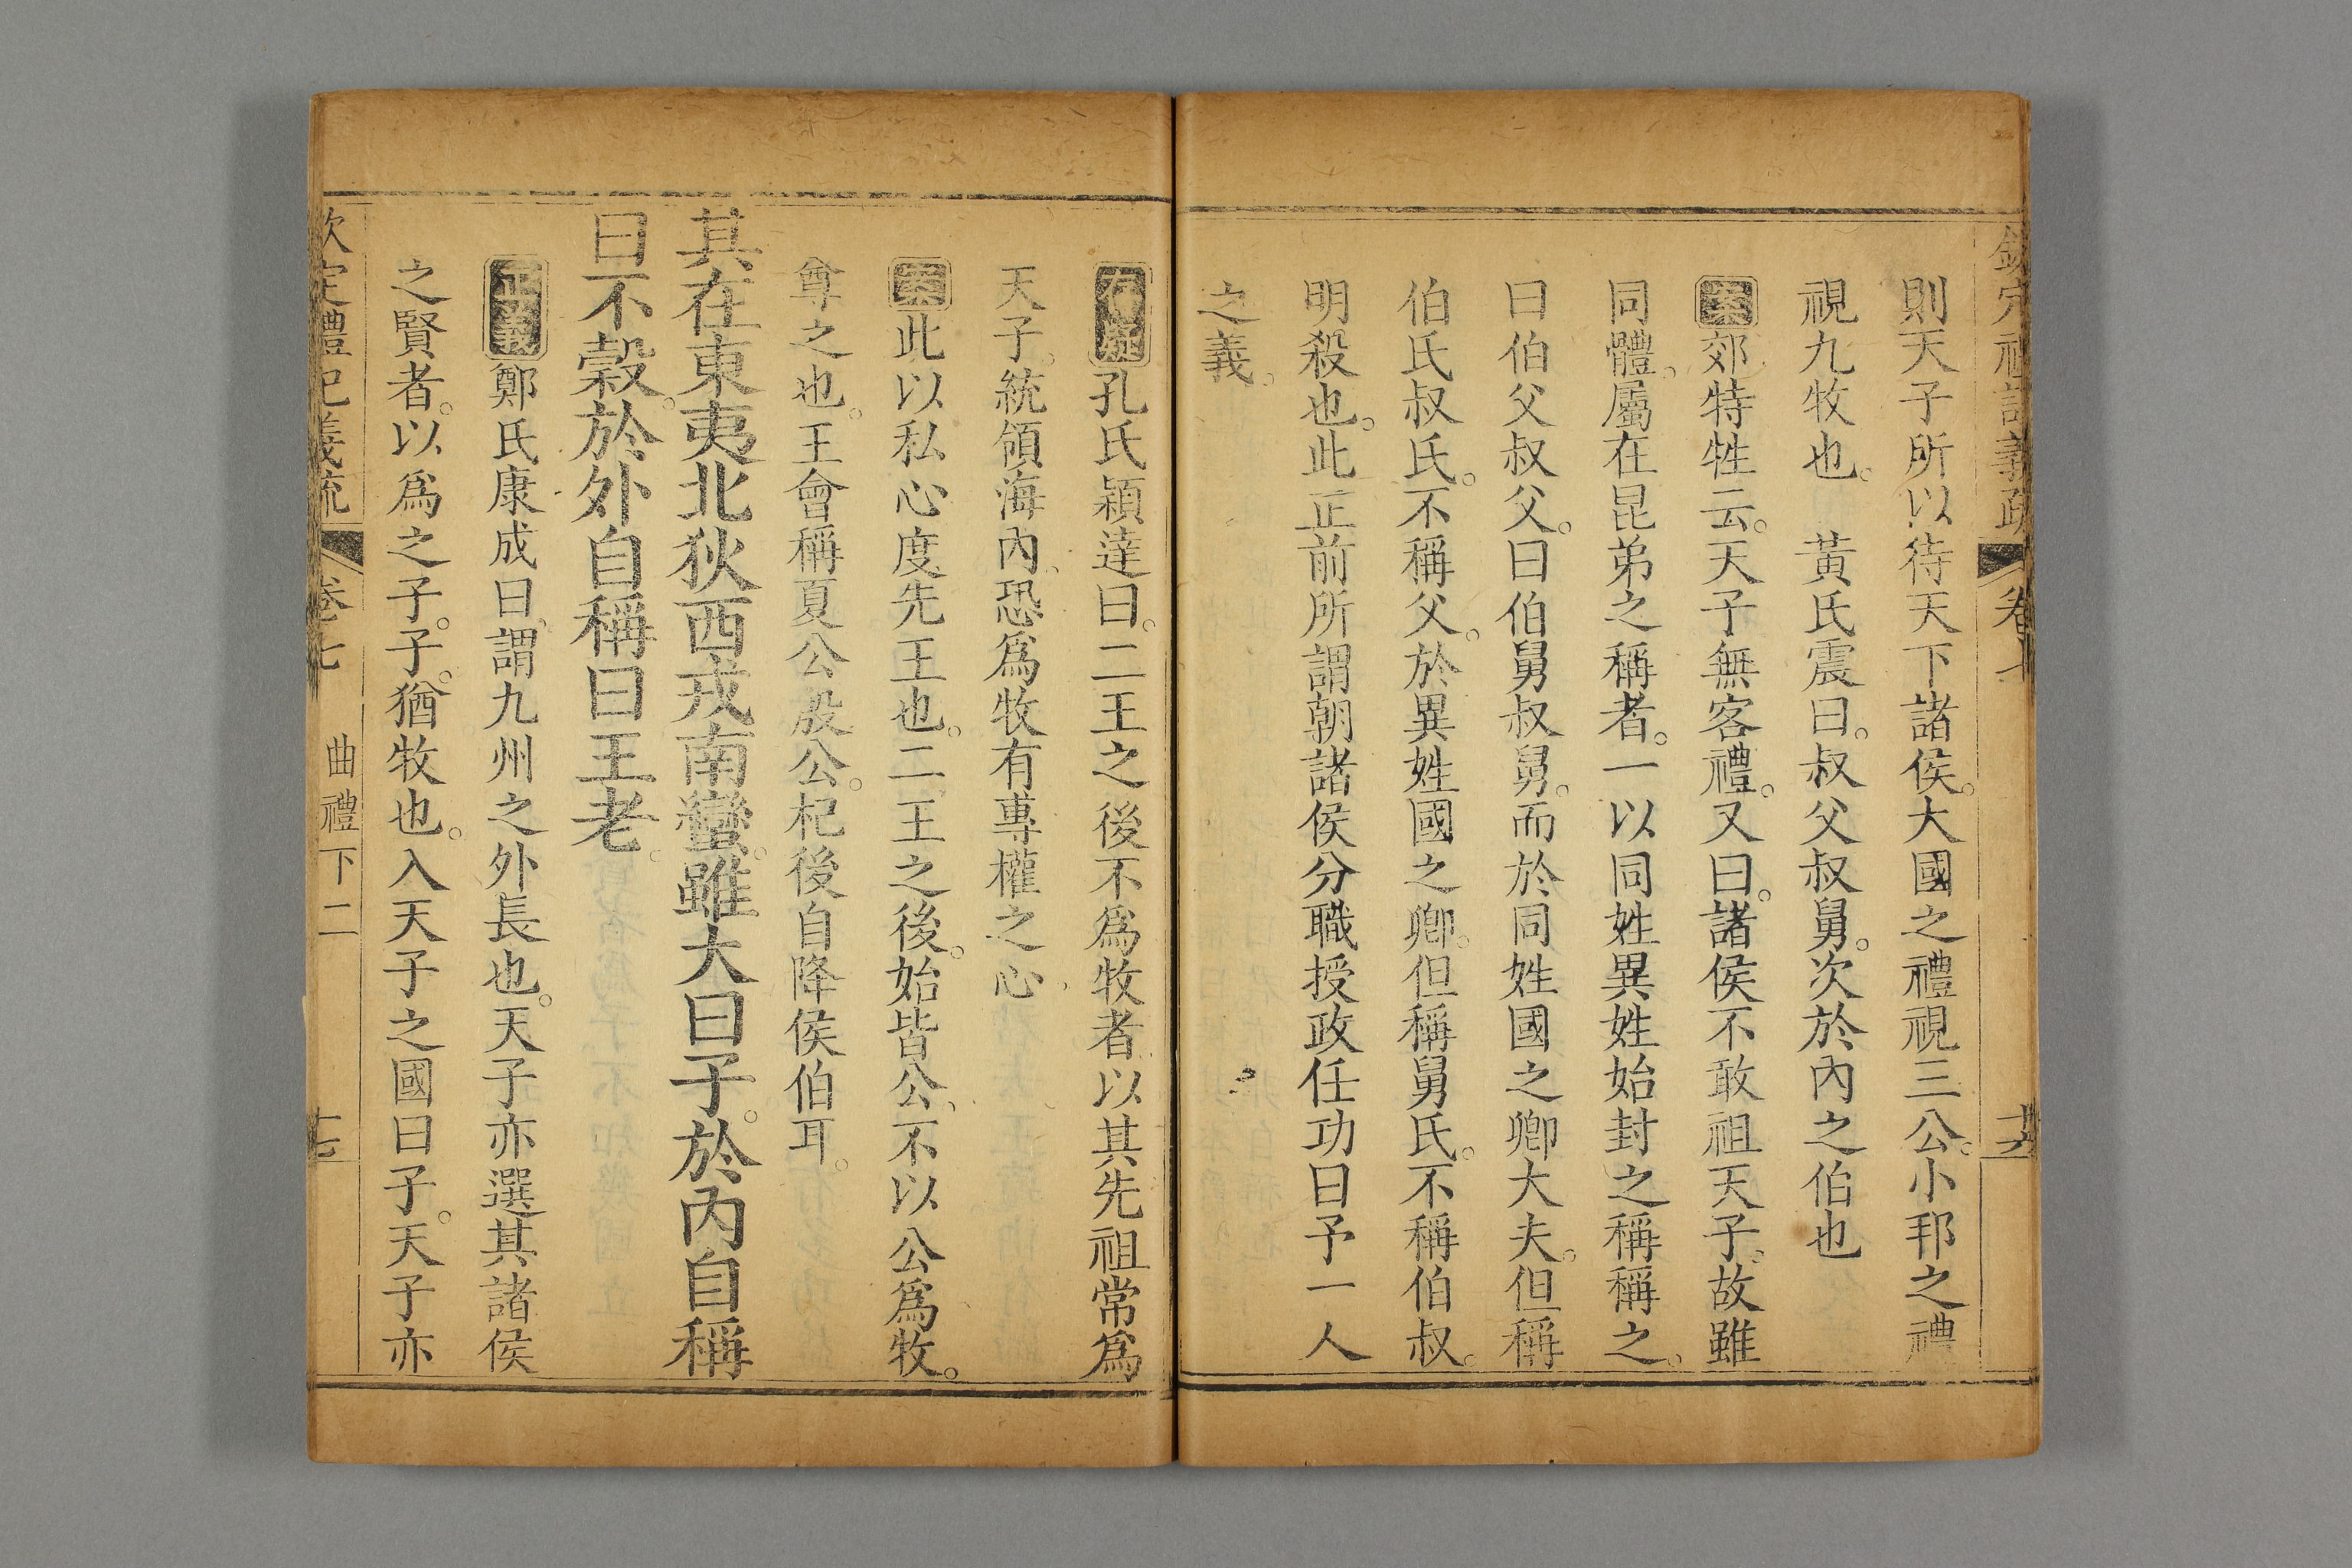 欽定禮記義疏 卷七 十六
則天子所以待天下諸侯。大國之禮視三公。小邦之禮
視九牧也。 黃氏震曰。叔父叔舅。次於內之伯也
案郊特牲云。天子無客禮。又曰。諸侯不敢祖天子。故雖
同體。屬在昆弟之稱者。一以同姓異姓始封之稱稱之。
曰伯父叔父。曰伯舅叔舅。而於同姓國之卿大夫。但稱
伯氏叔氏。不稱父。於異姓國之卿。但稱舅氏。不稱伯叔。
明殺也。此正前所謂朝諸侯分職授政任功曰予一人
之義。
孔氏穎達曰。二王之後不爲牧者以其先祖常爲
天子。統領海內。恐爲牧有專權之心
案此以私心度先王也。二王之後。始皆公。不以公爲牧。
尊之也。王會稱夏公殷公。杞後自降侯伯耳。
其在東夷北狄西戎南蠻。雖大曰子。於內自稱
曰不穀。於外自稱曰王老。
正義鄭氏康成曰。謂九州之外長也。天子亦選其諸侯
之賢者。以爲之子。子。猶牧也。入天子之國曰子。天子亦
欽定禮記義疏 卷七 曲禮下二 十七